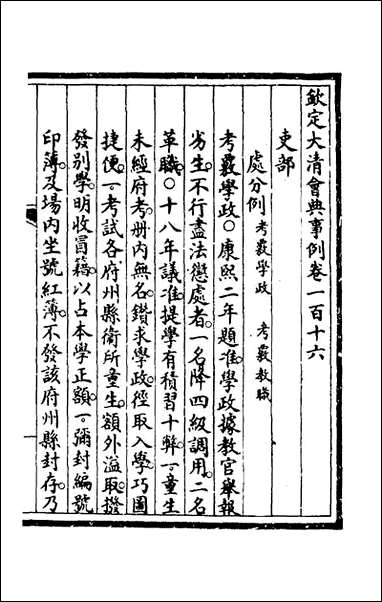 欽定大清會典事例卷一百十六
吏部
處分例 考覈學政 考覈教職
考覈學政○康熙二年題准學政據教官舉報
劣生不行盡法懲處者一名降四級調用二名
革職○十八年議准提學有積習十弊一童生
未經府考册內無名鑽求學政徑取入學巧圖
捷便一考試各府州縣衞所童生額外溢取撥
發別學明收冒籍以占本學正額一彌封編號
印簿及場內坐號紅簿不發該府州縣封存乃